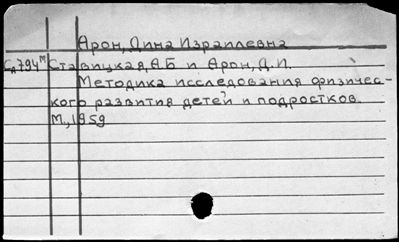 Арон, Дина Израилевна
Сд794м Ставицкая, А.Б и Арон, Д.И.
Методика исследования физичес-
кого развития детей и подростков.
М., 1959